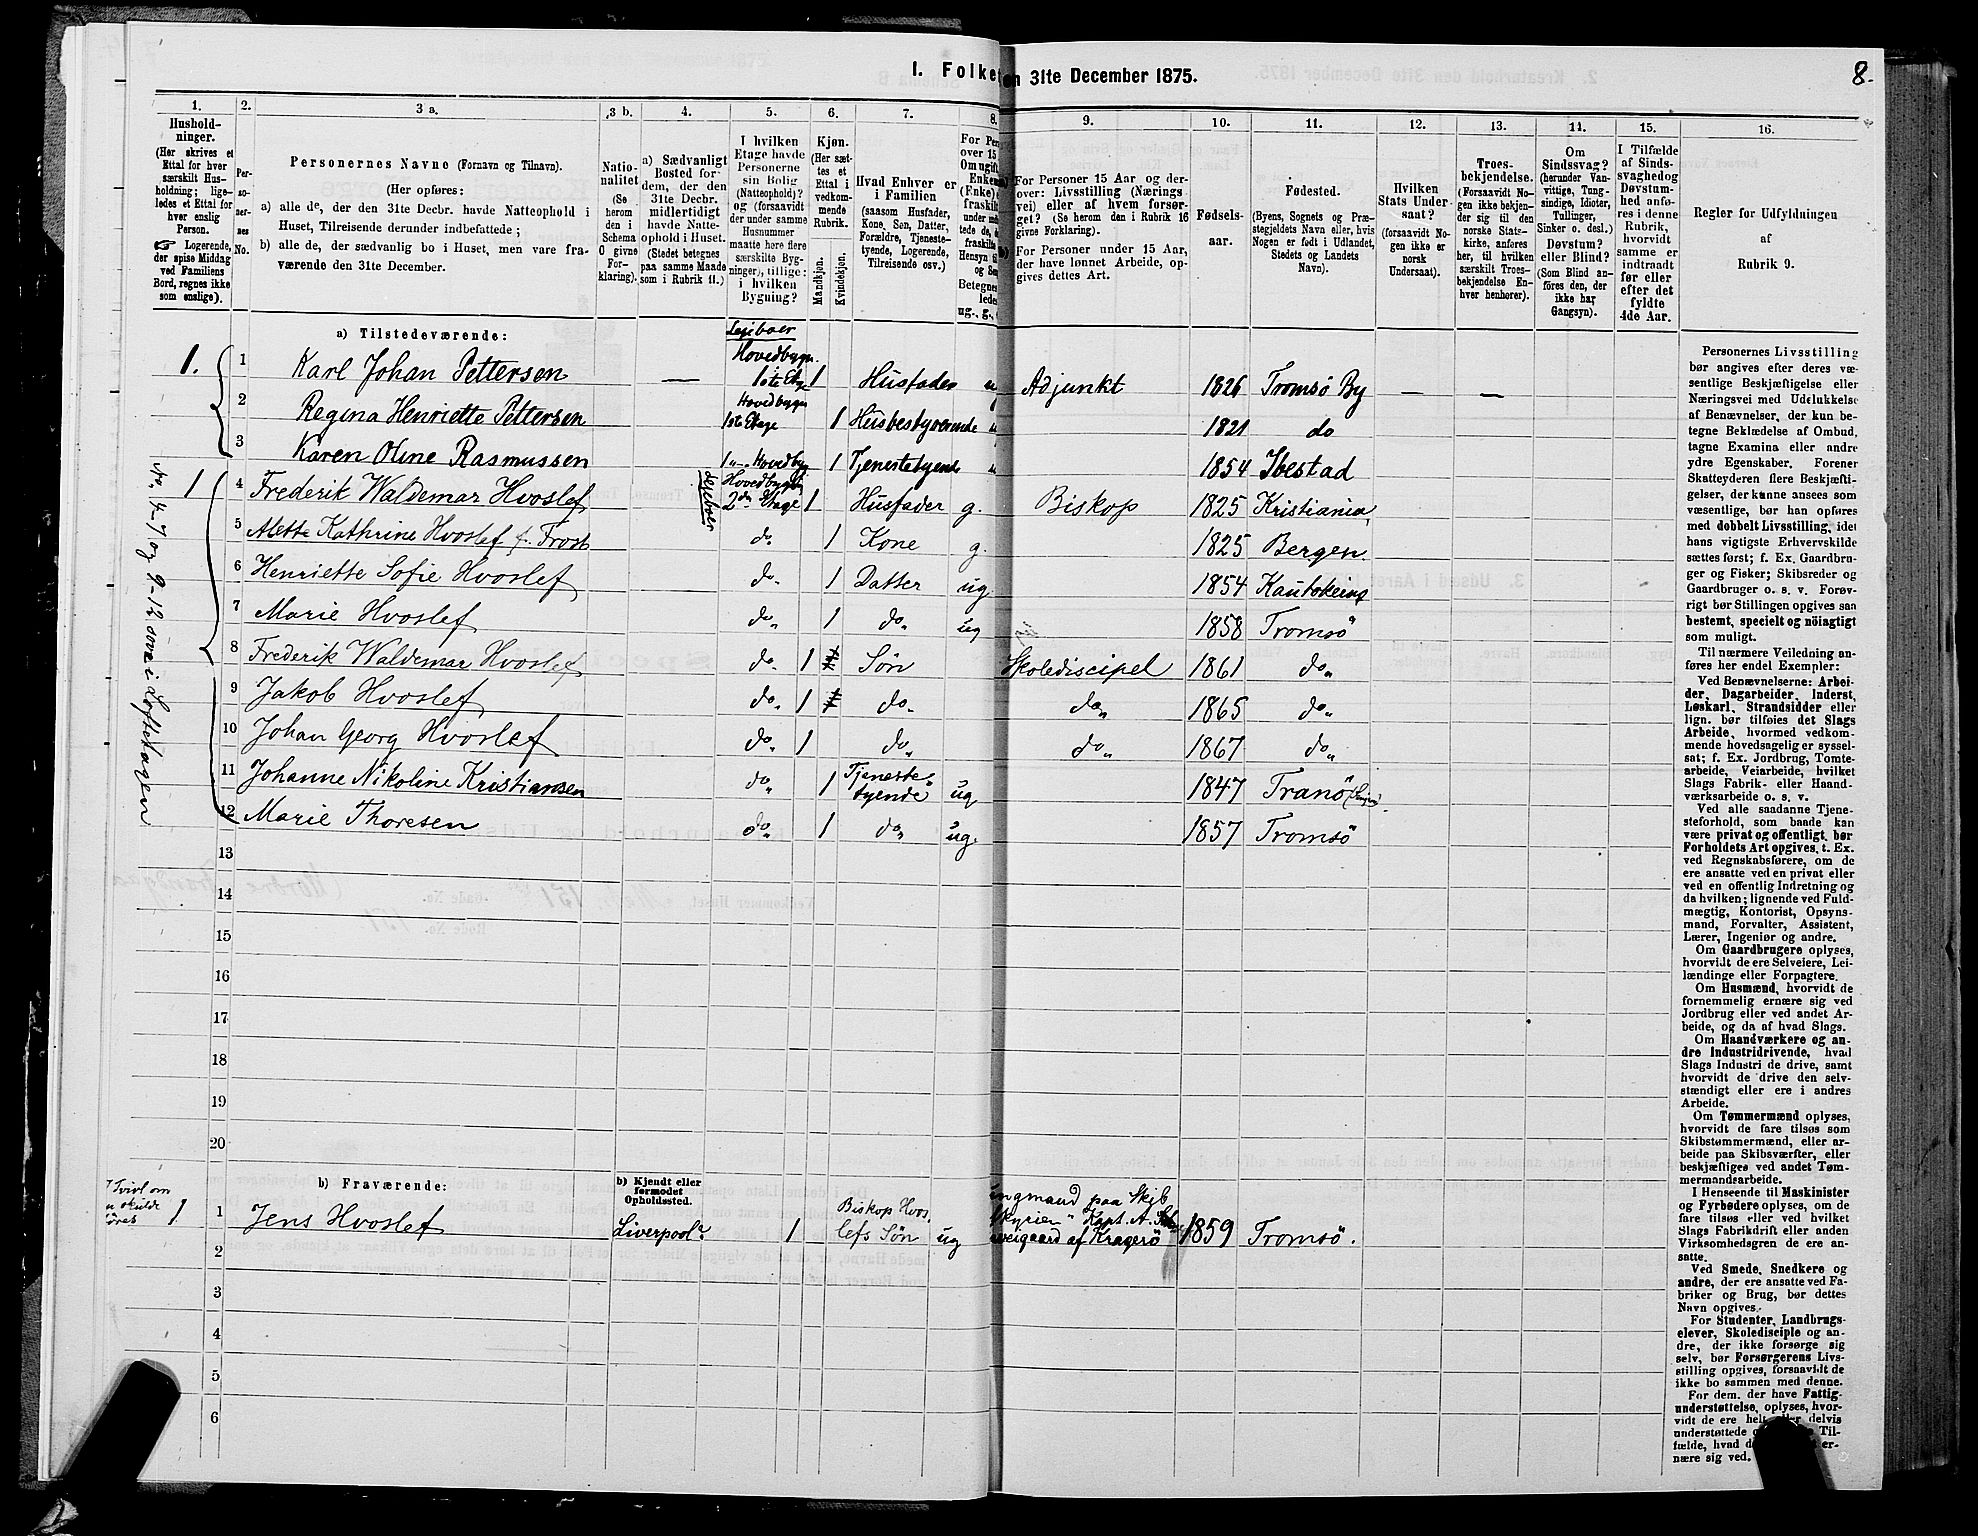 I. Folket
en 31te December 1875.
8.
1.
2.
3 a.
3 b.
4.
5.
6.
7.
8.
9.
10.
11.
12.
13.
14.
15.
16.
Hushold-
ninger.
(Her skrives et
Ettal for hver
særskilt Hus-
holdning; lige-
ledes et Ettal for
hver enslig
Person.
☞ Logerende,
der spise Middag
ved Familiens
Bord, regnes ikke
som enslige).
Per-
so-
ner-
nes
No.
Personernes Navne (Fornavn og Tilnavn).
(Her opføres:
a) alle de, der den 31te Decbr. havde Natteophold i
Huset, Tilreisende derunder indbefattede;
b) alle de, der sædvanlig bo i Huset, men vare fra-
værende den 31te December.
Natio-
nalitet
(Se
herom
den i
Schema
O givne
For-
klaring).
a) Sædvanligt
Bosted for
dem, der den
31te Decbr.
midlertidigt
havde Natte-
ophold i Huset.
(Stedet betegnes
paa samme Maade
som i Rubrik 11.)
I hvilken
Etage havde
Personerne
sin Bolig
(Natteophold)?
og (forsaavidt
der under samme
Husnummer
maatte høre flere
særskilte Byg-
ninger), tillige:
i hvilken
Bygning?
Kjøn.
(Her sæt-
tes et
Ettal i
vedkom-
mende
Rubrik.
Mandkjøn.
Kvindekjøn.
Hvad Enhver er
i Familien
(saasom Husfader,
Kone, Søn, Datter,
Forældre, Tjeneste-
tyende, Logerende,
Tilreisende osv.)
For Per
over 15
Om ugift
Enkem
(Enke)
fraskilt
ug., g.,
For Personer 15 Aar og der-
over: Livsstilling (Nærings
vei) eller af hvem forsør-
get? (Se herom den i Rubrik 16
givne Forklaring).
For Personer under 15 Aar,
der have lønnet Arbeide, op-
gives dettes Art.
Fødsels-
aar.
Fødested.
(Byens, Sognets og Præ-
stegjeldets Navn eller, hvis
Nogen er født i Udlandet,
Stedets og Landets
Navn).
Hvilken
Stats Under-
saat?
(forsaavidt No-
gen ikke er
norsk
Undersaat).
Troes-
bekjendelse.
(Forsaavidt No-
gen ikke bekjen-
der sig til den
norske Stats-
kirke, anføres
her, til hvilken
særskilt Troes-
bekjendelse En-
hver henhører).
Om
Sindssvag?
(herunder Van-
vittige, Tung-
sindige, Idioter,
Tullinger,
Sinker o. desl.)
Døvstum?
eller Blind?
(Som Blind an-
føres den, der
ikke har
Gangsyn).
I Tilfælde
af Sinds-
svaghed og
Døvstum-
hed anfø-
res i denne
Rubrik,
hvorvidt
samme er
indtraadt
før eller
efter det
fyldte
4de Aar.
Regler for Udfyldningen
af
Rubrik 9.
a) Tilstedeværende:
Lejeboer
1. 1 Karl Johan Pettersen — Hovedbygn. 1ste Etg 1 Husfader Adjunkt 1826 Tromsö By — —
2 Regina Henriette Pettersen Hovedbygn 1ste Etage 1 Husbestyrerinde 1821 do
3 Karen Oline Rasmussen 1 " Hovedbyg 1 Tjenestetyende 1854 Ibestad
1 4 Frederik Waldemar Hvoslef Lejeboer Hovedbygn 2den Etage 1 Husfader g. Biskop 1825 Kristiania
5 Mette Kathrine Hvoslef f. Frost do. 1 Kone g. 1825 Bergen
6 Henriette Sofie Hvoslef do. 1 Datter ug. 1854 Kautokeino
7 Marie Hvoslef do. 1 do. ug 1858 Tromsö
8 Frederik Waldemar Hvoslef do. 1 Søn Skolediscipel 1861 do.
9 Jakob Hvoslef do. 1 do. do. 1865 do.
10 Johan Georg Hvoslef do. 1 do. do. 1867 do.
11 Johanne Nikoline Kristiansen do. 1 Tjeneste tyende ug 1847 Tranö
12 Marie Thoresen do. 1 do. ug. 1857 Tromsö
No. 4-7 og 9-12 sove i Loftetagen
13
14
15
16
17
18
19
20
b) Fraværende:
b) Kjendt eller
formodet
Opholdssted.
Tvivl om
skulde
1 1 Jens Hvoslef Liverpool? 1 Biskop Hvos- lefs Søn ug
ungmand paa Skib
Kapt. A.
af Kragerö
1859 Tromsö.
2
3
4
5
6
Personernes Livsstilling
bør angives efter deres væ-
sentlige Beskjæftigelse eller
Næringsvei med Udelukkelse
af Benævnelser, der kun be-
tegne Beklædelse af Ombud,
tagne Examina eller andre
ydre Egenskaber. Forener
Skatteyderen flere Beskjæfti-
gelser, der kunne ansees som
væsentlige, bør han opføres
med dobbelt Livsstilling, idet
hans vigtigste Erhvervskilde
sættes først; f. Ex. Gaardbru-
ger og Fisker; Skibsreder og
Gaardbruger o. s. v. Forøv-
rigt bør Stillingen opgives saa
bestemt, specielt og nöiagtigt
som muligt.
Til nærmere Veiledning an-
føres her endel Exempler:
Ved Benævnelserne: Arbei-
der, Dagarbeider, Inderst,
Løskarl, Strandsidder eller
lign. bør tilføies det Slags
Arbeide, hvormed vedkom-
mende hovedsagelig er syssel-
sat; f. Ex. Jordbrug, Tomte-
arbeide, Veiarbeide, hvilket
Slags Fabrik- eller Haand-
værksarbeide o. s. v.
Ved alle saadanne Tjene-
steforhold, som baade kan
være privat og offentligt, bør
Forholdets Art opgives, t. Ex.
ved Regnskabsførere, om de
ere ansatte ved en privat eller
ved en offentlig Indretning og
da hvilken; lignende ved Fuld-
mægtig, Kontorist, Opsyns-
mand, Forvalter, Assistent,
Lærer, Ingeniør og andre.
Om Gaardbrugere oplyses,
hvorvidt de ere Selveiere, Lei-
lændinge eller Forpagtere.
Om Husmænd, hvorvidt de
fornemmelig ernære sig ved
Jordbrug eller ved andet Ar-
beide, og da af hvad Slags.
Om Haandværkere og an-
dre Industridrivende, hvad
Slags Industri de drive, samt
hvorvidt de drive den selv-
stændigt eller ere i andres
Arbeide.
Om Tømmermænd oplyses,
hvorvidt de fare tilsøs som
Skibstømmermænd, eller ar-
beide paa Skibsværfter, eller
beskjæftiges ved andet Tøm-
mermandsarbeide.
I Henseende til Maskinister
og Fyrbødere oplyses, om de
fare tilsøs eller ved hvilket
Slags Fabrikdrift eller anden
Virksomhedsgren de ere an-
satte.
Ved Smede, Snedkere og
andre, der ere ansatte ved Fa-
briker og Brug, bør dettes
Navn opgives.
For Studenter, Landbrugs-
elever, Skoledisciple og an-
dre, der ikke forsørge sig
selv, bør Forsørgerens Livs-
stilling opgives, forsaavidt de
ikke bo sammen med denne.
For dem, der have Fattig-
understøttelse, oplyses, hvor-
vidt de ere helt eller delvis
understøttede og Til-
fælde, hvad d er-
nære sig ved.